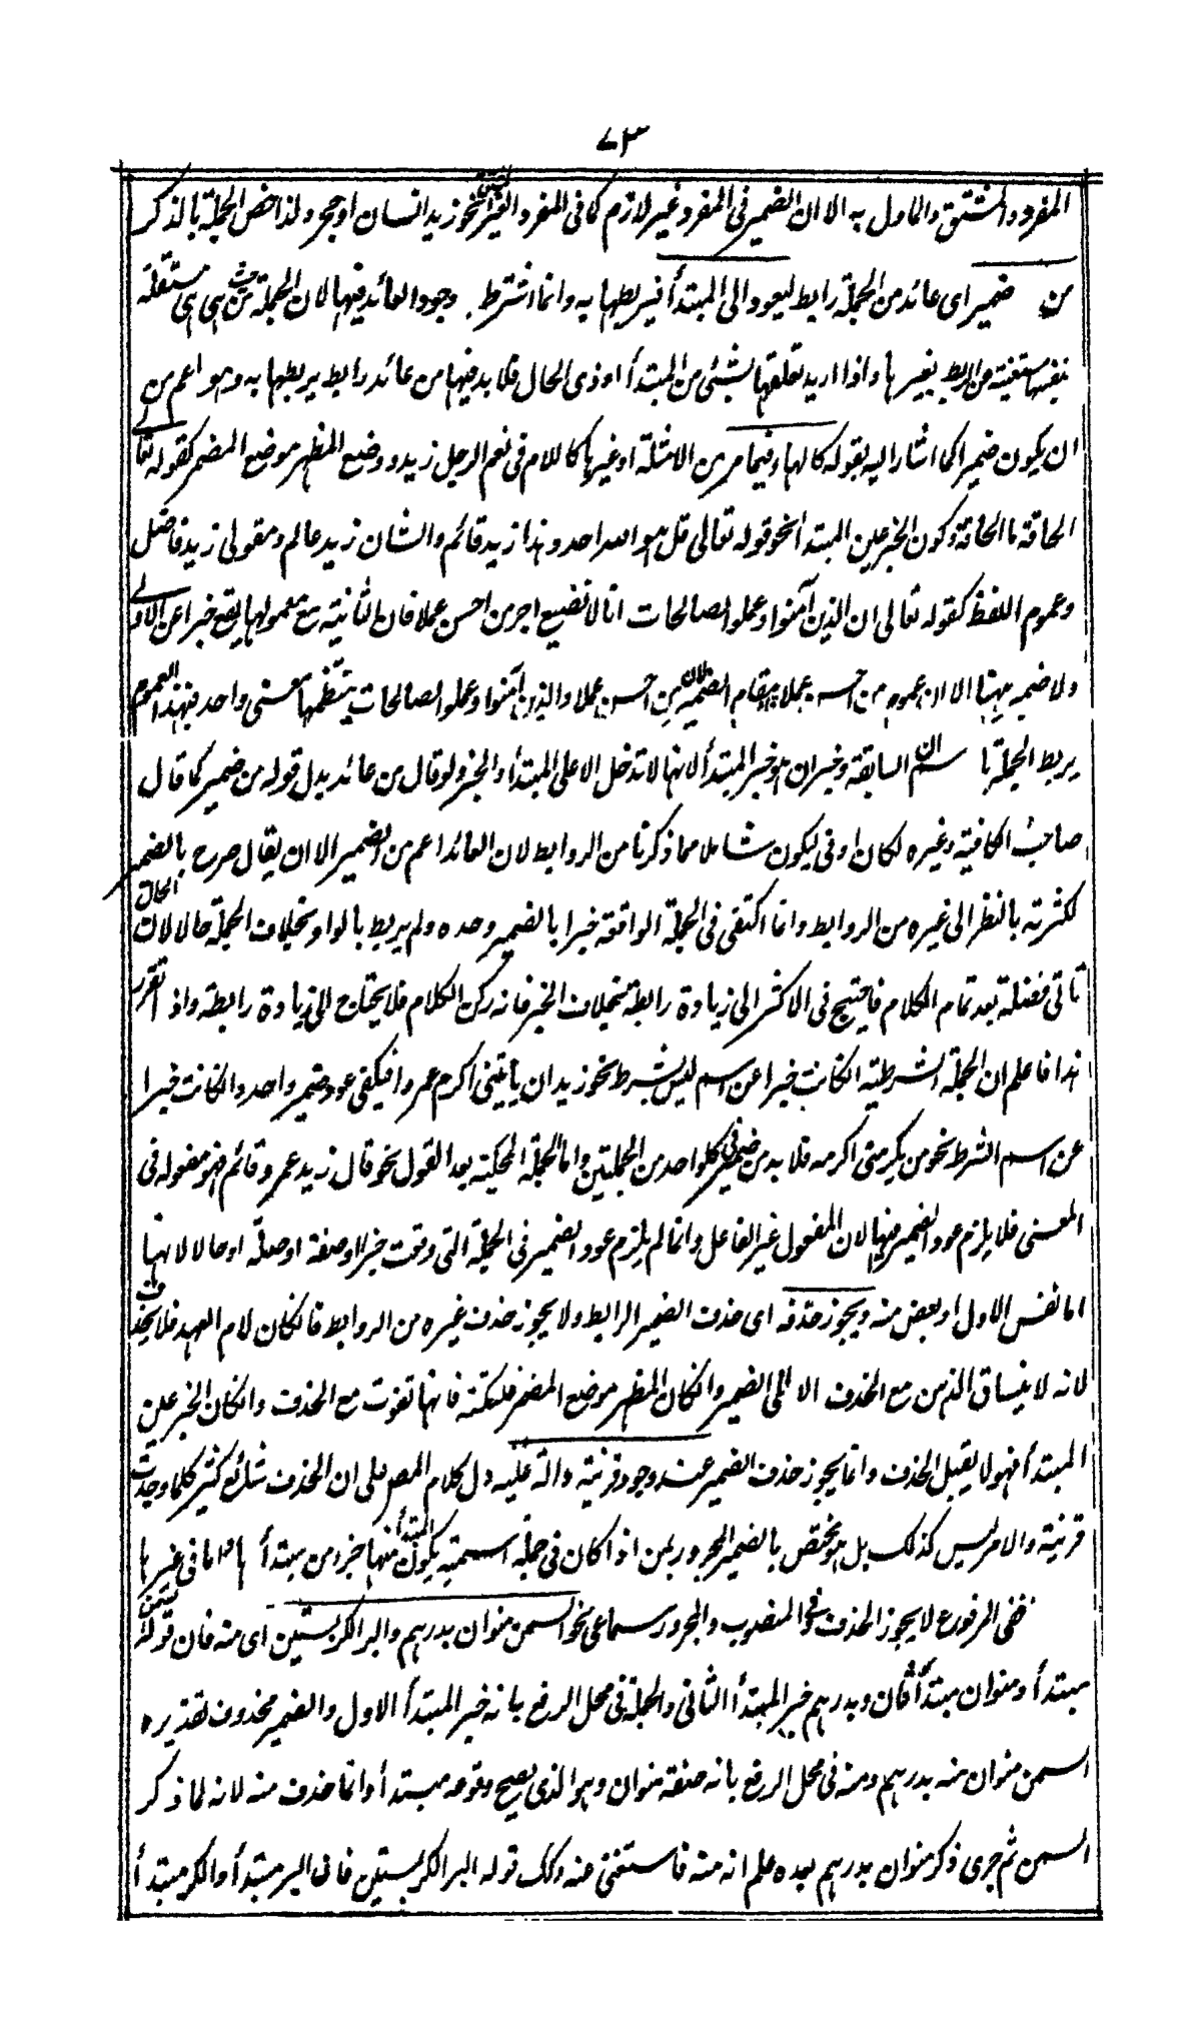 ٧٣
المفرد والمشتق والماول به الا ان الضمير فى المفرد غير لازم كما فى المفرد الغير المشتق نحو زيد انسان او حجر ولذا خص الجملة بالذكر
من ضمير اى عائد من الجملة رابط ليعود الى المبتدأ فيربطها به وانما اشترط وجود العائد فيها لان الجملة من حيث هى هى مستقلة
بنفسها مستغنية عن الربط بغيرها واذا اريد تعلقها بشئ من المبتدأ او ذى الحال فلا بد فيها من عائد رابط يربطها به وهو اعم من
ان يكون ضميرا كما اشار اليه بقوله كالهاء فيما مر من الامثلة او غيرها كاللام فى نعم الرجل زيد ووضع المظهر موضع المضمر كقوله تعا
الحاقة ما الحاقة وكون الخبر عين المبتدأ نحو قوله تعالى قل هو الله احد وهذا زيد قائم والشان زيد عالم ومقولى زيد فاضل
وعموم اللفظ كقوله تعالى ان الذين آمنوا وعملوا الصالحات انا لا نضيع اجر من احسن عملا فان الثانية مع معمولها يقع خبرا عن الاولى
ولا ضمير هٰهنا الا ان عموم من احسن عملا يقام الضمير لان من احسن عملا والذين آمنوا وعملوا الصالحات ينتظمها معنى واحد فبهذا العموم
يربط الجملة باسم ان السابقة وخبر ان هو خبر المبتدأ لانها لا تدخل الا على المبتدأ والخبر ولو قال من عائد بدل قوله من ضمير كما قال
صاحب الكافية وغيره لكان اوفى ليكون شاملا مما ذكرنا من الروابط لان العائد اعم من الضمير الا ان يقال صرح بالضمير
لكثرته بالنظر الى غيره من الروابط وانما اكتفى فى الجملة الواقعة خبرا بالضمير وحده ولم يربط بالواو بخلاف الجملة حالا لان الحال
تاتى فضلة بعد تمام الكلام فاحتيج فى الاكثر الى زيادة رابطة بخلاف الخبر فانه ركن الكلام فلا يحتاج الى زيادة رابطة واذ اتقرر
هذا فاعلم ان الجملة الشرطية ان كانت خبرا عن اسم ليس بشرط نحو زيد ان ياتينى اكرم عمروا فيكفى عود ضمير واحد وان كانت خبرا
عن اسم الشرط نحو من يكرمنى اكرمه فلا بد من ضمير فى كل واحد من الجملتين واما الجملة المحكية بعد القول نحو قال زيد عمرو قائم فهو مفعوله فى
المعنى فلا يلزم عود الضمير فيها لان المفعول غير الفاعل وانما لم يلزم عود الضمير فى الجملة التى وقعت خبرا او صفة او صلة او حالا لانها
اما نفس الاول او بعض منه ويجوز حذفه اى حذف الضمير الرابط ولا يجوز حذف غيره من الروابط فانكان لام العهد فلا يحذف
لانه لا ينساق الذهن مع الحذف الا الى الضمير وانكان المظهر موضع المضمر فلنكتة فانها تفوت مع الحذف وانكان الخبر عين
المبتدأ فهو لا يقبل الحذف وانما يجوز حذف الضمير عند وجود قرينة دالة عليه دل كلام المصـ على ان الحذف شائع كثير كلما وجدت
قرينة والامر ليس كذلك بل هو يختص بالضمير المجرور بمن اذا كان فى جملة اسمية يكون المبتدأ منها جزء من مبتدأ اما فى غيرها
ففى المرفوع لا يجوز الحذف وفى المنصوب والمجرور سماعى نحو السمن منوان بدرهم والبر الكر بستين اى منه فان قوله السمن
مبتدأ ومنوان مبتدأ ثان وبدرهم خبر المبتدأ الثانى والجملة فى محل الرفع بانه خبر المبتدأ الاول والضمير محذوف تقديره
السمن منوان منه بدرهم ومنه فى محل الرفع بانه صفة منوان وهو الذى يصح وقوعه مبتدأ وانما حذف منه لانه لما ذكر
السمن ثم جرى ذكر منوان بدرهم بعده علم انه منه فاستغنى عنه وكذلك قوله البر الكر بستين فان البر مبتدأ والكر مبتدأ